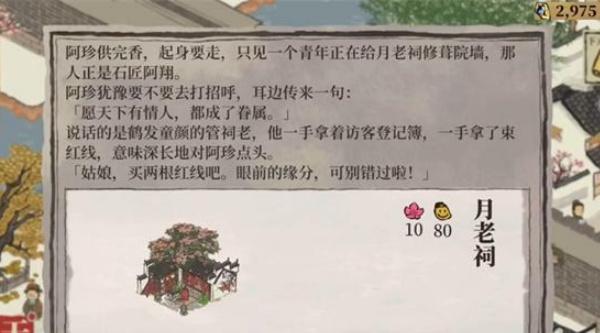 2,975
阿珍供完香，起身要走，只见一个青年正在给月老祠修葺院墙，那
人正是石匠阿翔。
阿珍犹豫要不要去打招呼，耳边传来一句：
「愿天下有情人，都成了眷属。」
说话的是鹤发童颜的管祠老，他一手拿着访客登记簿，一手拿了束
红线，意味深长地对阿珍点头。
「姑娘，买两根红线吧。眼前的缘分，可别错过啦！」
月老祠
10 80